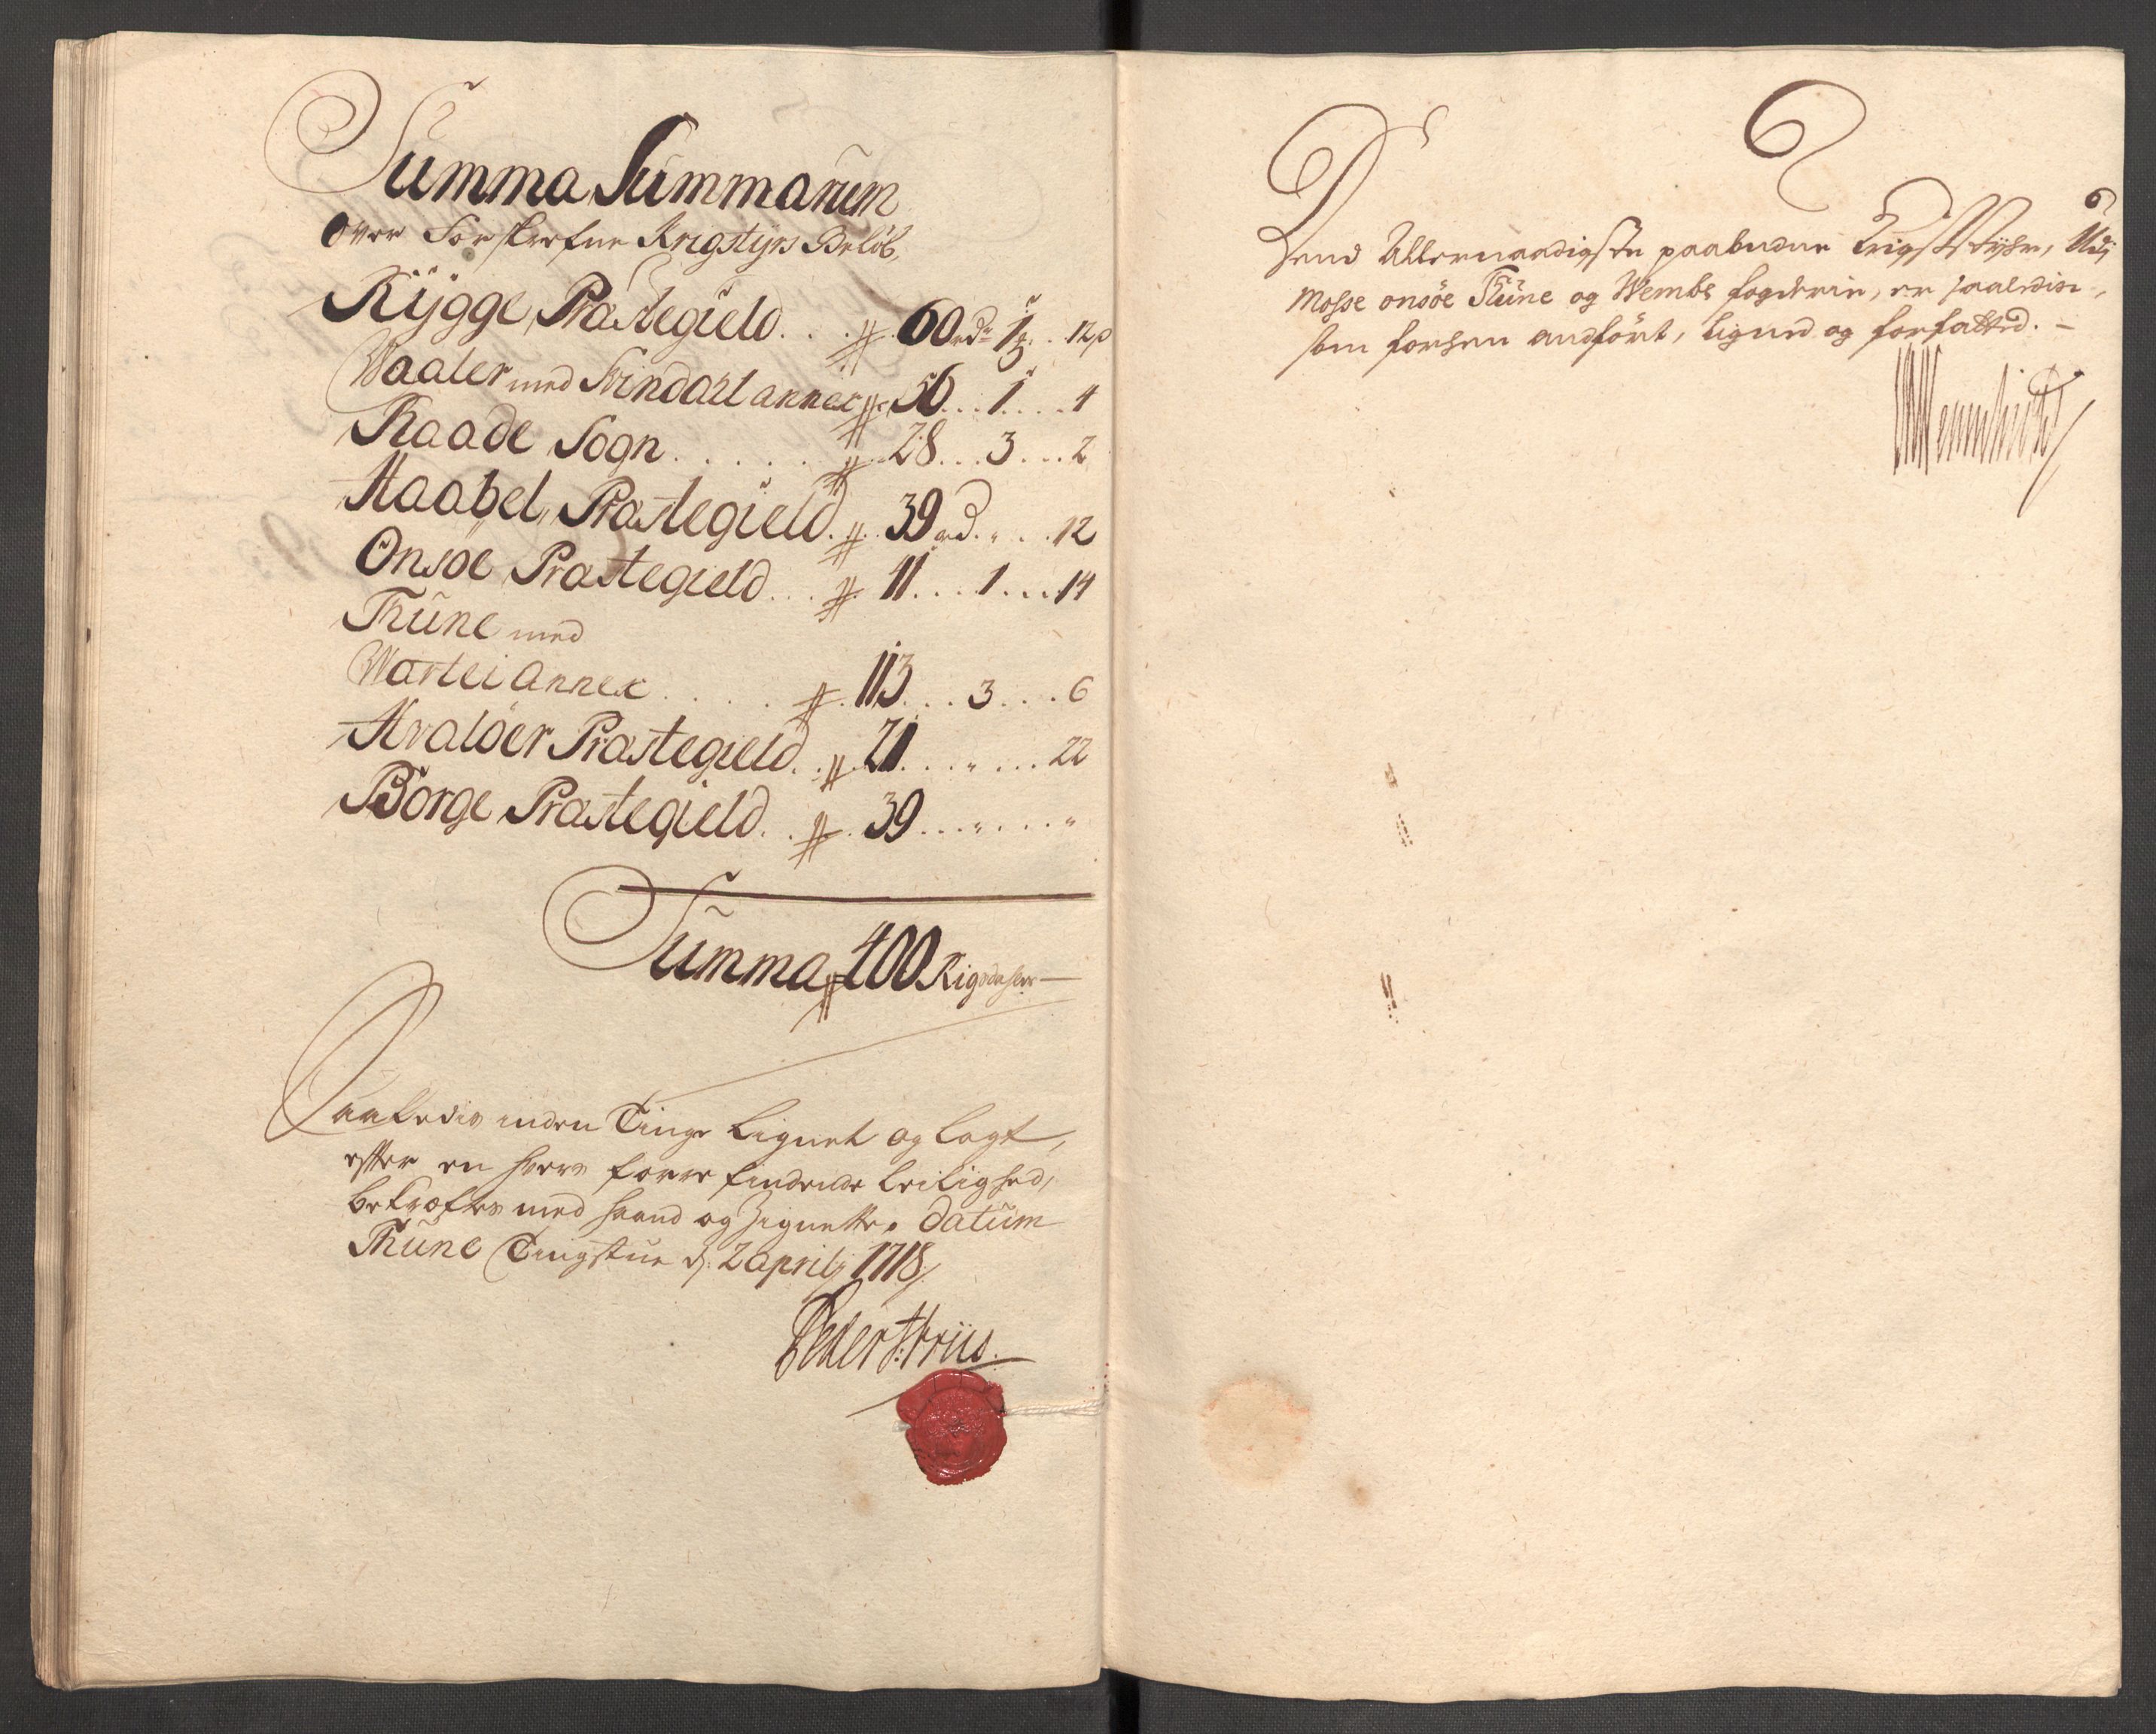 Summa Summarum
Over Forskrefne Krigstyrs Beløb,
Rÿgge Præstegield . . . 60 rdr 1 . . 12 ß
Waaler med Svindahl annex 56 . . . 1 . . . . 4
Raade Sogn . . . . . 28 . . . 3 . . . 2
Haabel Præstegield . . 39 rd . „ . . . 12
Onsöe Præstegield . . . 41 . . . 1 . . . 14
Thune med
Warteiannex . . . . . 113 . . . 3 . . . 6
Hvalöer Præstegield . . 21 . . . „ . . . 22
Borge Præstegield . . 39 . . . „ . . . „
Summa 400 Rigsdahler
Saaledis inden Tinge Lignet og Lagt,
efter en hvers forre findende Leilighed,
bekræftes med haand og Zignette. Datum
Thune Tingstue d: 2 aprily 1718
Peder Friis.
6
Dend Allernaadigste paabudne Krigs Styhr, Udj
Mosse onsöe Thune og Wembe fogderie, er saaledis,
som forhen andfört, Ligned og forfatted. –